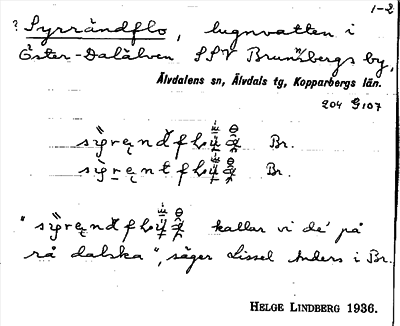 1-2
? Syrråndflo, lugnvatten i
Öster-Dalälven SSV Brunnbergs by,
Älvdalens sn, Älvdals tg, Kopparbergs län.
204 G 107
Br.
Br.
kallar vi de' på
rå dalska", säger Lissel Anders i Br.
HELGE LINDBERG 1936.